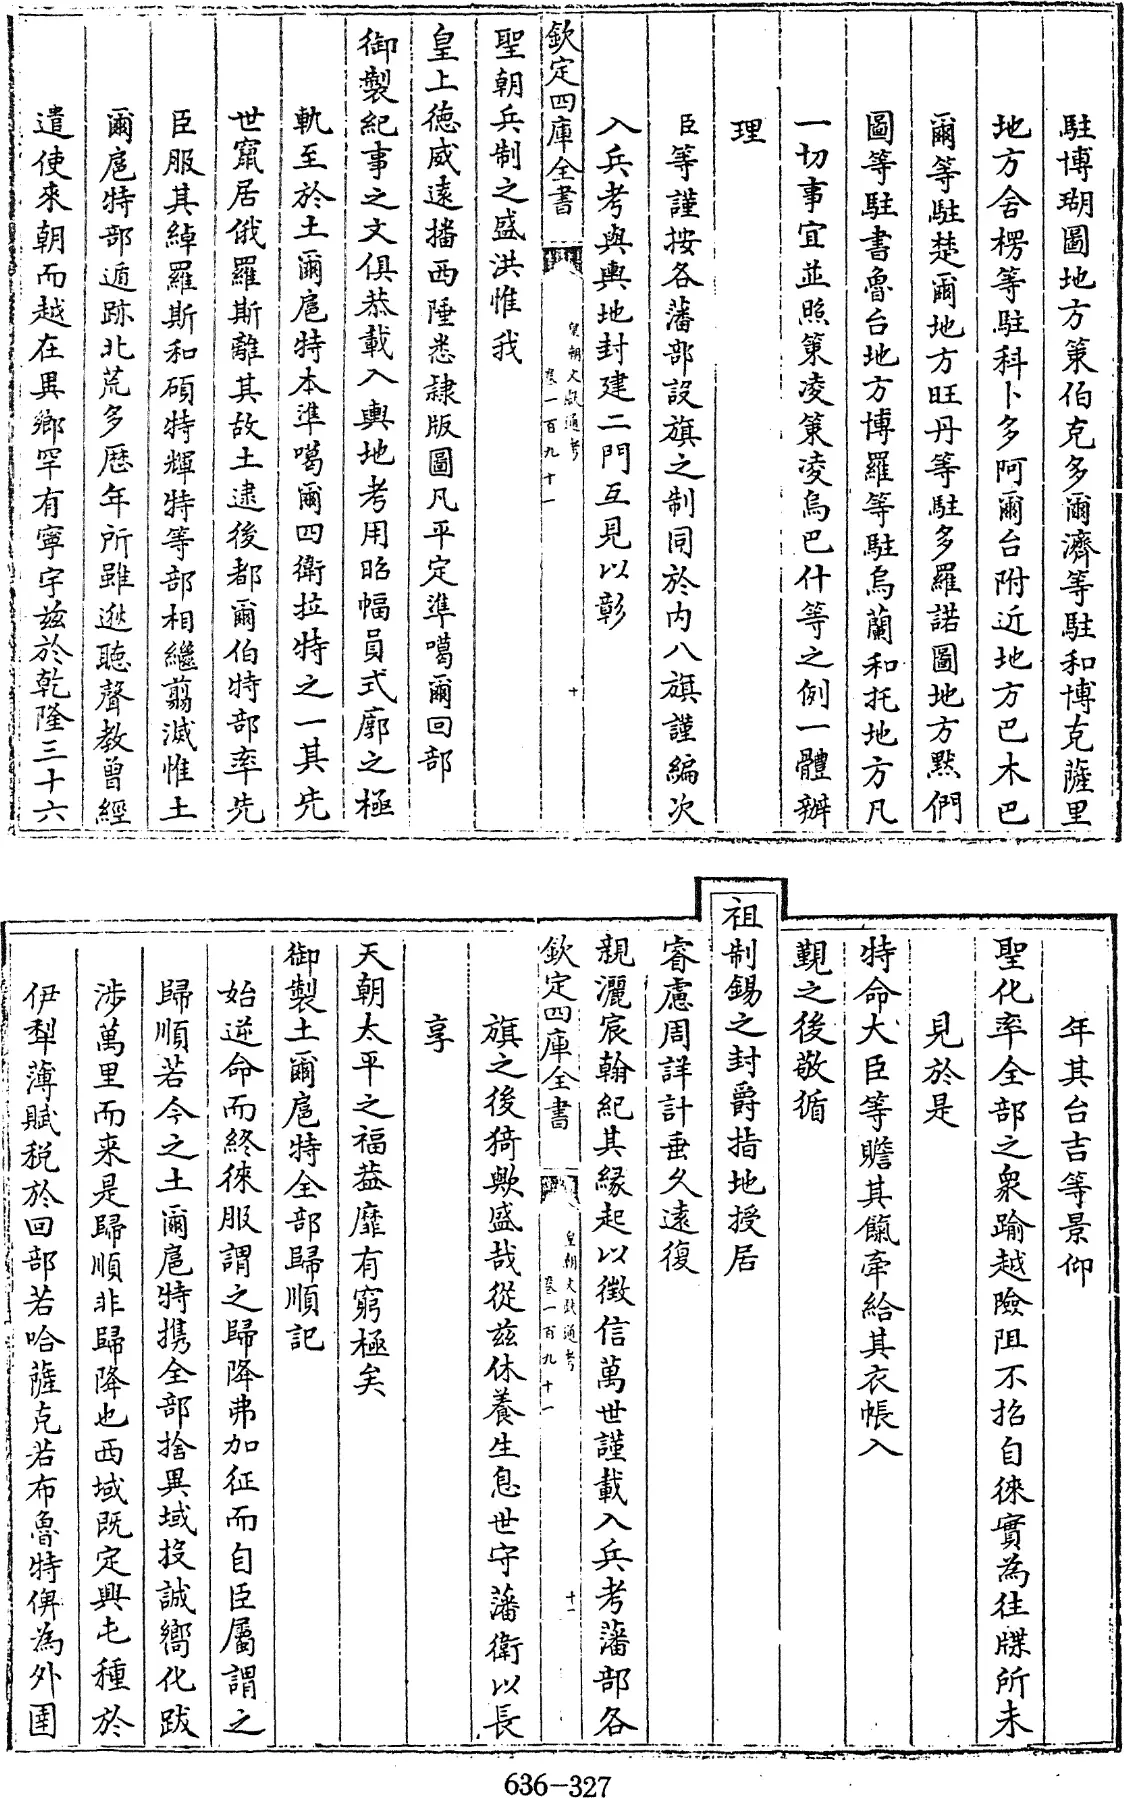 駐博瑚圖地方策伯克多爾濟等駐和博克薩里
地方舍楞等駐科卜多阿爾台附近地方巴木巴
爾等駐楚爾地方旺丹等駐多羅諾圖地方黙們
圖等駐書魯台地方博羅等駐烏蘭和托地方凡
一切事宜並照策凌策凌烏巴什等之例一體辦
理
臣等謹按各藩部設旗之制同於内八旗謹編次
入兵考與輿地封建二門互見以彰
欽定四庫全書
皇朝文獻通考
卷一百九十一
十
聖朝兵制之盛洪惟我
皇上德威遠播西陲悉隷版圖凡平定準噶爾回部
御製紀事之文俱恭載入輿地考用昭幅員式廓之極
軌至於土爾扈特本準噶爾四衛拉特之一其先
世竄居俄羅斯離其故土逮後都爾伯特部率先
臣服其綽羅斯和碩特輝特等部相繼翦滅惟土
爾扈特部遁跡北荒多歴年所雖逖聽聲教曾經
遣使來朝而越在異鄉罕有寧宇兹於乾隆三十六
年其台吉等景仰
聖化率全部之衆踰越險阻不招自徠實為往牒所未
見於是
特命大臣等贍其餼牽給其衣帳入
覲之後敬循
祖制錫之封爵指地授居
睿慮周詳計垂久遠復
親灑宸翰紀其緣起以徵信萬世謹載入兵考藩部各
欽定四庫全書
皇朝文獻通考
卷一百九十一
十一
旗之後猗歟盛哉從兹休養生息世守藩衛以長
享
天朝太平之福葢靡有窮極矣
御製土爾扈特全部歸順記
始逆命而終徠服謂之歸降弗加征而自臣屬謂之
歸順若今之土爾扈特攜全部捨異域投誠嚮化跋
涉萬里而来是歸順非歸降也西域既定興屯種於
伊犁薄賦稅於回部若哈薩克若布魯特俾為外圉
636-327